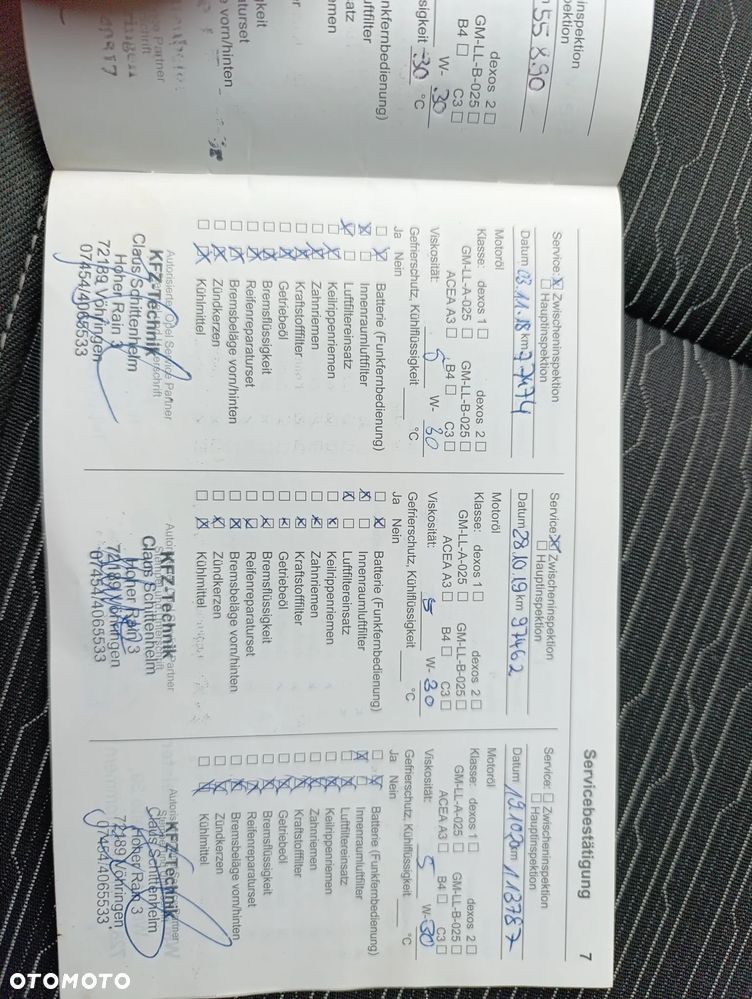 inspektion
pektion
55 890
dexos 2
GM-LL-B-025
C3
B4
W- 30
ssigkeit -30 °C
nkfernbedienung)
uftfilter
satz
emen
raturset
vorn/hinten
Servicebestätigung
7
Service: Zwischeninspektion
Hauptinspektion
Datum 03.11.18 km 77474
Motoröl
Klasse: dexos 1 dexos 2
GM-LL-A-025 GM-LL-B-025
ACEA A3 B4 C3
Viskosität: 5 W- 30
Gefrierschutz, Kühlflüssigkeit °C
Ja Nein
Batterie (Funkfernbedienung)
Innenraumluftfilter
Luftfiltereinsatz
Keilrippenriemen
Zahnriemen
Kraftstofffilter
Getriebeöl
Bremsflüssigkeit
Reifenreparaturset
Bremsbeläge vorn/hinten
Zündkerzen
Kühlmittel
Autorisierter Opel Service Partner
KFZ-Technik
Claus Schittenhelm
Hoher Rain 3
72189 Vöhringen
07454/4065533
Service: Zwischeninspektion
Hauptinspektion
Datum 28.10.19 km 97462
Motoröl
Klasse: dexos 1 dexos 2
GM-LL-A-025 GM-LL-B-025
ACEA A3 B4 C3
Viskosität: 5 W- 30
Gefrierschutz, Kühlflüssigkeit °C
Ja Nein
Batterie (Funkfernbedienung)
Innenraumluftfilter
Luftfiltereinsatz
Keilrippenriemen
Zahnriemen
Kraftstofffilter
Getriebeöl
Bremsflüssigkeit
Reifenreparaturset
Bremsbeläge vorn/hinten
Zündkerzen
Kühlmittel
KFZ-Technik
Claus Schittenhelm
Hoher Rain 3
72189 Vöhringen
07454/4065533
Service: Zwischeninspektion
Hauptinspektion
Datum 19.10.20 km 113787
Motoröl
Klasse: dexos 1 dexos 2
GM-LL-A-025 GM-LL-B-025
ACEA A3 B4 C3
Viskosität: 5 W- 30
Gefrierschutz, Kühlflüssigkeit °C
Ja Nein
Batterie (Funkfernbedienung)
Innenraumluftfilter
Luftfiltereinsatz
Keilrippenriemen
Zahnriemen
Kraftstofffilter
Getriebeöl
Bremsflüssigkeit
Reifenreparaturset
Bremsbeläge vorn/hinten
Zündkerzen
Kühlmittel
KFZ-Technik
Claus Schittenhelm
Hoher Rain 3
72189 Vöhringen
07454/4065533
OTOMOTO